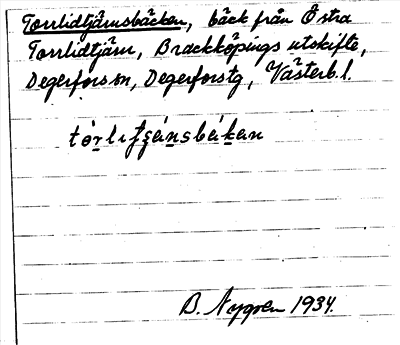 Torrlidtjärnsbäcken, bäck från Östra
Torrlidtjärn, Brackköpings utskifte,
Degerfors sn, Degerforstg, Västerb. l.
B. Nygren 1934.